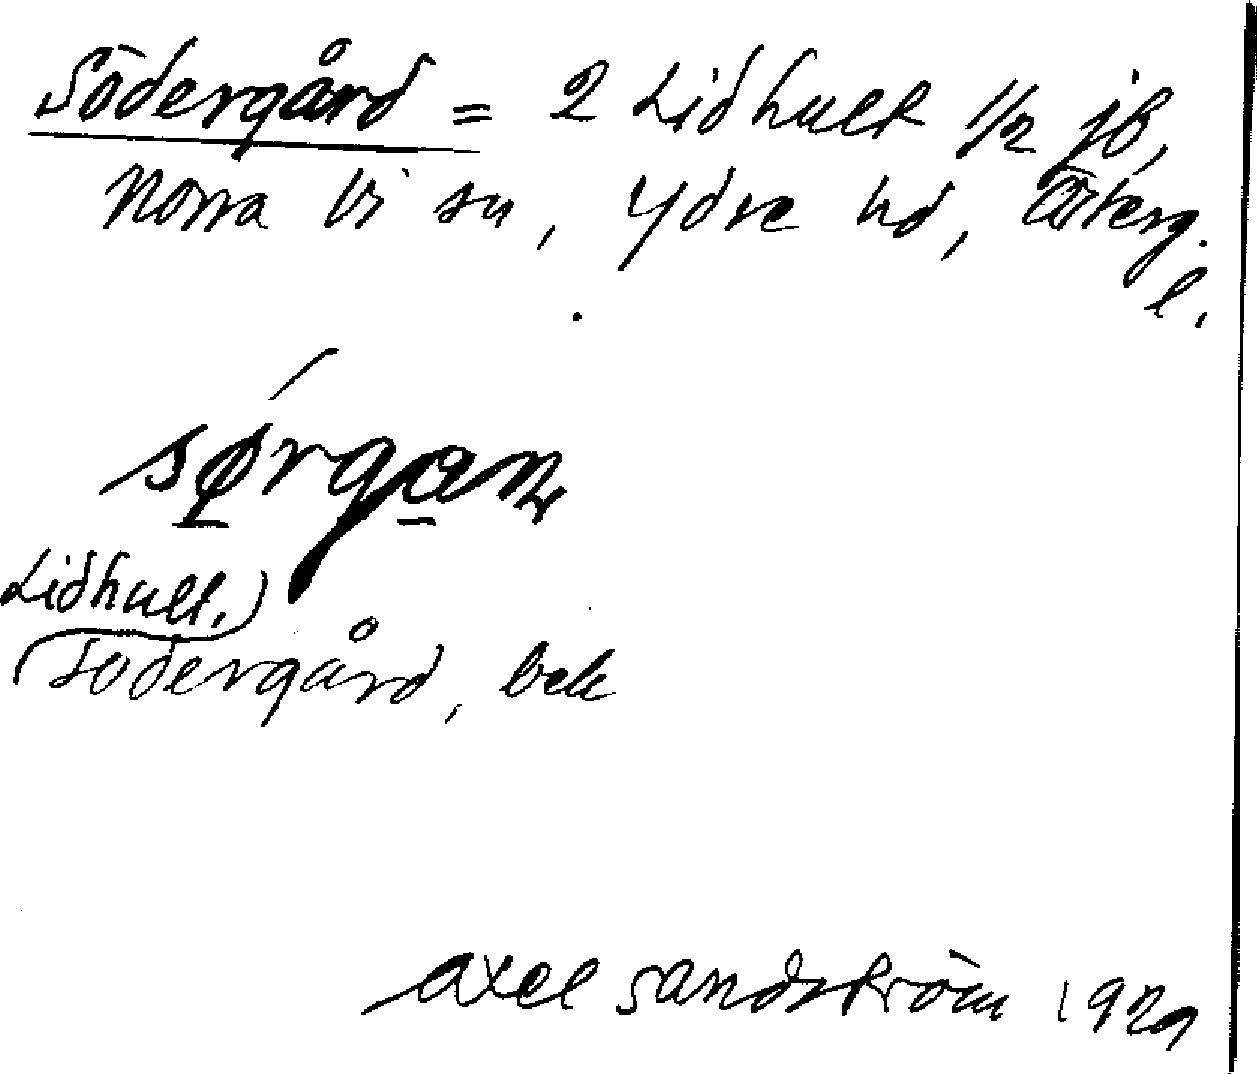 Södergård = 2 Lidhult 1/2 jb,
Norra Vi sn, Ydre hd, Österg.
l.
sørgan
Lidhult.)
(Södergård, bek
Axel Sandström 1929